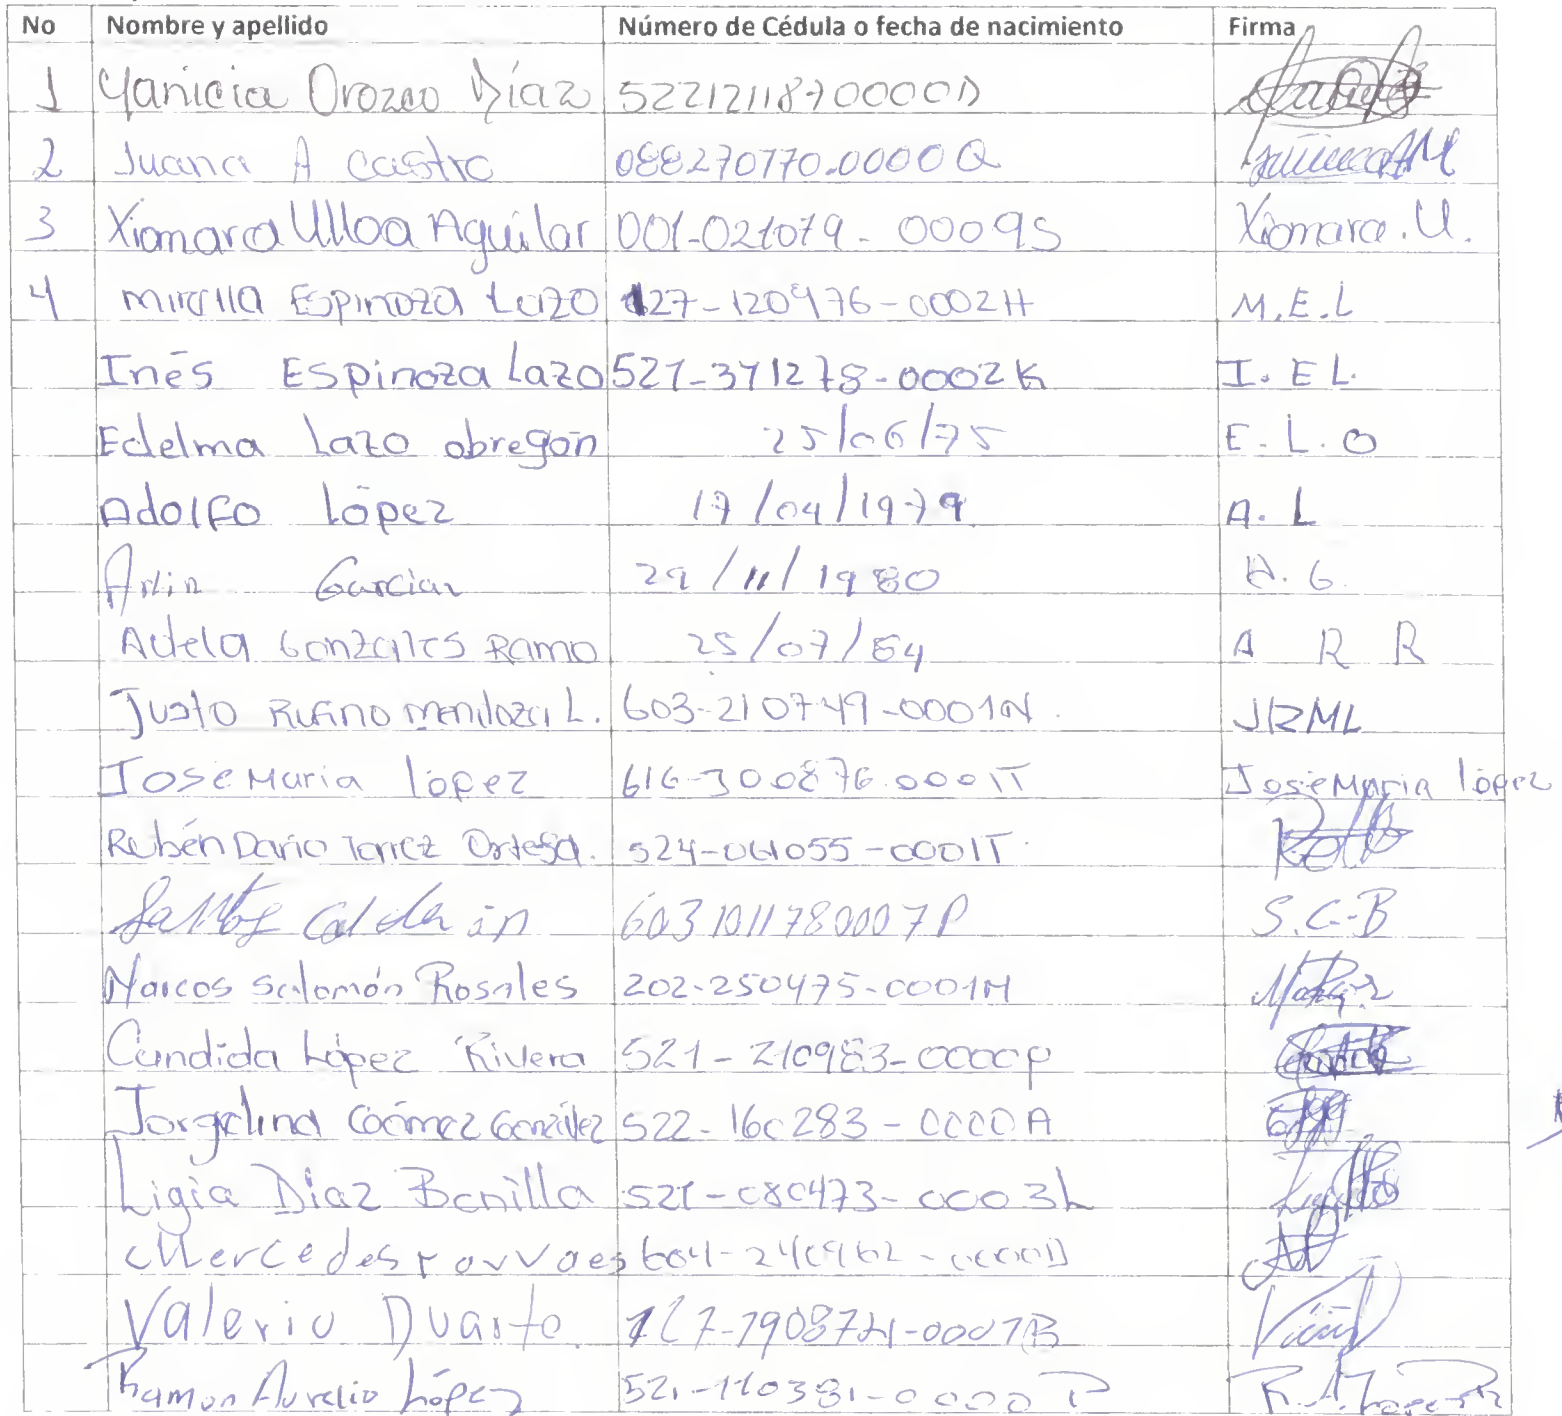 No Nombre y apellido Número de Cédula o fecha de nacimiento Firma
1 Yanicia Orozco Díaz 5221211870000D
2 Juana A Castro 088270770.0000Q
3 Xiomara Ulloa Aguilar 001-021079-0009S Xiomara.U.
4 Mirilla Espinoza Lazo 127-120976-0002H M.E.L
Inés Espinoza Lazo 521-371278-0002K I. E L.
Edelma Lazo obregón 25/06/75 E-L.O
Adolfo López 17/04/1979 A. L
Arlin Garcia 29/11/1980 A. G.
Adela Gonzales Ramo 25/07/64 A R R
Justo Rufino Mendoza L. 603-210749-0001N JRML
Jose Maria López 616-300876.0001T Jose Maria López
Rubén Dario Torrez Ortega. 524-061055-0001T
Santos Calderón 6031011780007P S.C-B
Marcos Salomón Rosales 202-250475-0001M
Candida López Rivera 521-210983-0000P
Jorgelina González 522-160283-0000A
Ligia Diaz Bonilla 521-080473-0003L
Mercedes 604-240962-0000D
Valerio Duarte 127-190872-1-0001B
Ramon Aurelio López 521-110381-0000P